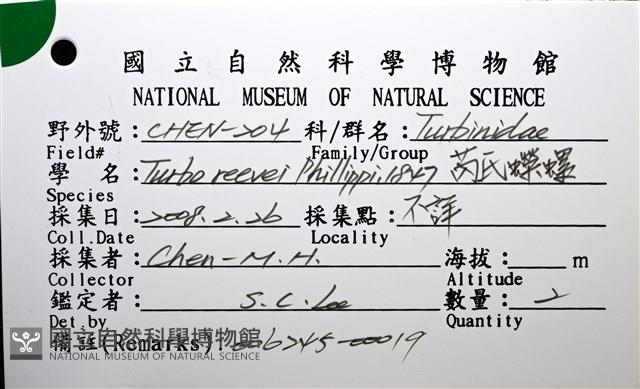 國立自然科學博物館
NATIONAL MUSEUM OF NATURAL SCIENCE
野外號：CHEN-204 科/群名：Turbinidae
Field# Family/Group
學 名：Turbo reevei Phillippi, 1847 芮氏蠑螺
Species
採集日：2008.2.26 採集點：不詳
Coll.Date Locality
採集者：Chen-M.H. 海拔：m
Collector Altitude
鑑定者：S.C. Lee 數量：2
Det.by Quantity
備註(Remarks)：-00019
國立自然科學博物館
NATIONAL MUSEUM OF NATURAL SCIENCE